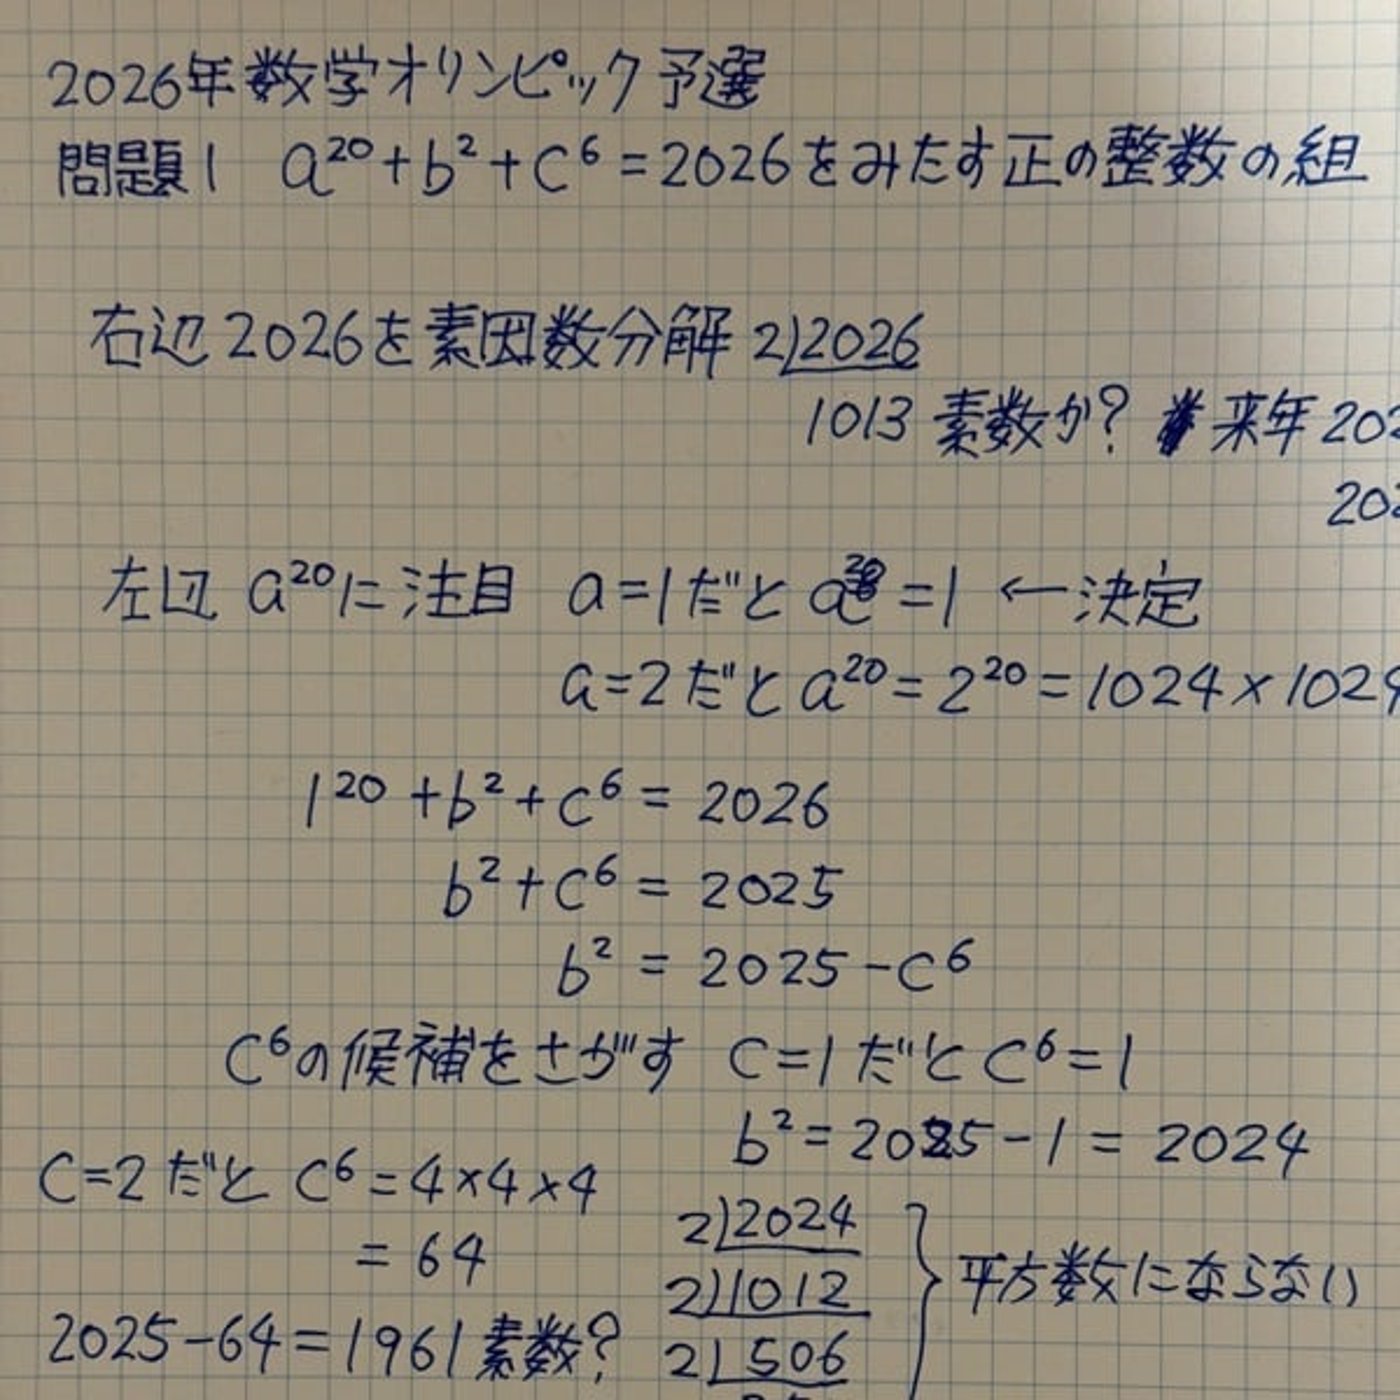 2026年数学オリンピック予選
問題1 a²⁰+b²+c⁶=2026をみたす正の整数の組
右辺2026を素因数分解 2)2026
1013 素数か? 来年202
202
左辺 a²⁰に注目 a=1だと a²⁰=1 ←決定
a=2だと a²⁰=2²⁰=1024×1024
1²⁰+b²+c⁶=2026
b²+c⁶=2025
b²=2025-c⁶
c⁶の候補をさがす c=1だと c⁶=1
b²=2025-1=2024
c=2だと c⁶=4×4×4
=64
2025-64=1961素数?
2)2024
2)1012
2)506
平方数にならない